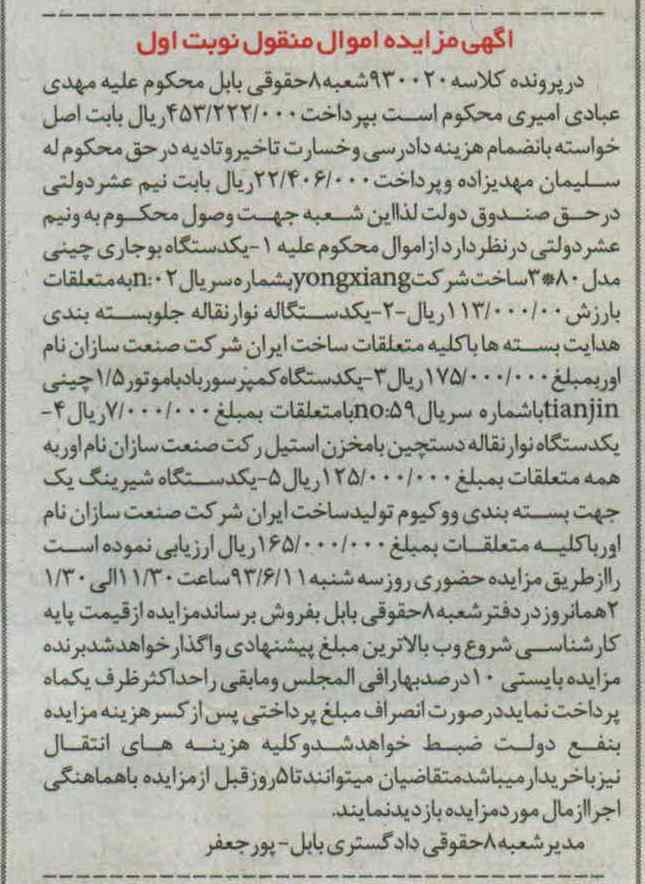 آگهی مزایده اموال منقول نوبت اول
در پرونده کلاسه ۹۳۰۰۲۰ شعبه ۸ حقوقی بابل محکوم علیه مهدی
عبادی امیری محکوم است بپرداخت ۴۵۳/۲۲۲/۰۰۰ ریال بابت اصل
خواسته بانضمام هزینه دادرسی و خسارت تاخیر و تادیه در حق محکوم له
سلیمان مهدیزاده و پرداخت ۲۲/۴۰۶/۰۰۰ ریال بابت نیم عشر دولتی
در حق صندوق دولت لذا این شعبه جهت وصول محکوم به و نیم
عشر دولتی در نظر دارد از اموال محکوم علیه ۱-یکدستگاه بوجاری چینی
مدل ۸۰*۳ ساخت شرکت yongxiang بشماره سریال n:۰۲ به متعلقات
بارزش ۱۱۳/۰۰۰/۰۰ ریال -۲-یکدستگاله نوار نقاله جلو بسته بندی
هدایت بسته ها با کلیه متعلقات ساخت ایران شرکت صنعت سازان نام
اور بمبلغ ۱۷۵/۰۰۰/۰۰۰ ریال ۳-یکدستگاه کمپرسور باد با موتور ۱/۵ چینی
tianjin باشماره سریال no:۵۹ بامتعلقات بمبلغ ۷/۰۰۰/۰۰۰ ریال ۴-
یکدستگاه نوار نقاله دستچین با مخزن استیل رکت صنعت سازان نام اور به
همه متعلقات بمبلغ ۱۲۵/۰۰۰/۰۰۰ ریال ۵-یکدستگاه شیرینگ یک
جهت بسته بندی و وکیوم تولید ساخت ایران شرکت صنعت سازان نام
اور باکلیه متعلقات بمبلغ ۱۶۵/۰۰۰/۰۰۰ ریال ارزیابی نموده است
را از طریق مزایده حضوری روز سه شنبه ۹۳/۶/۱۱ ساعت ۱۱/۳۰ الی ۱/۳۰
۲همانروز در دفتر شعبه ۸ حقوقی بابل بفروش برساند مزایده از قیمت پایه
کارشناسی شروع وب بالاترین مبلغ پیشنهادی واگذار خواهد شد برنده
مزایده بایستی ۱۰ درصد بهارا فی المجلس و مابقی را حداکثر ظرف یکماه
پرداخت نماید در صورت انصراف مبلغ پرداختی پس از کسر هزینه مزایده
بنفع دولت ضبط خواهد شد و کلیه هزینه های انتقال
نیز با خریدار میباشد متقاضیان میتوانند تا ۵ روز قبل از مزایده با هماهنگی
اجرا از مال مورد مزایده بازدید نمایند.
مدیر شعبه ۸ حقوقی دادگستری بابل - پور جعفر